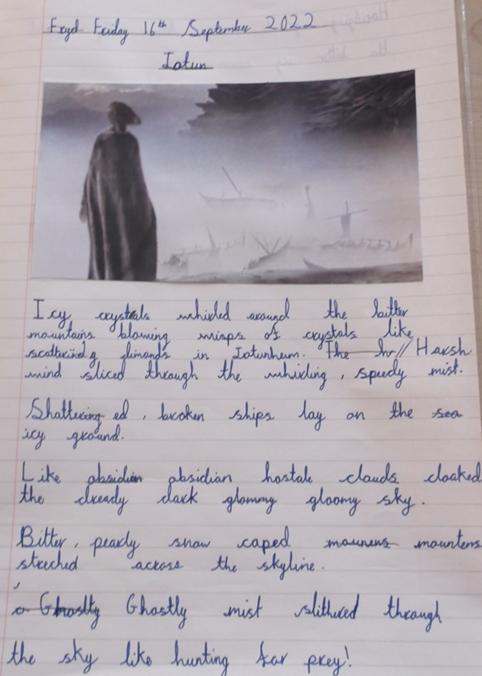 Fryd Friday 16th September 2022
Iotun
Icy crystals whirled around the bitter
mountains blowing wisps of crystals like
scattering dimonds in Iotunhum. The hr// Harsh
wind sliced through the whirling, speedy mist.
Shattering ed, broken ships lay on the sea
icy ground.
Like obsidian obsidian hostale clouds cloaked
the already dark glommy gloomy sky.
Bitter, pearly snow caped mounens mountens
streched across the skyline.
Ghostly Ghostly mist slithered through
the sky like hunting for prey!